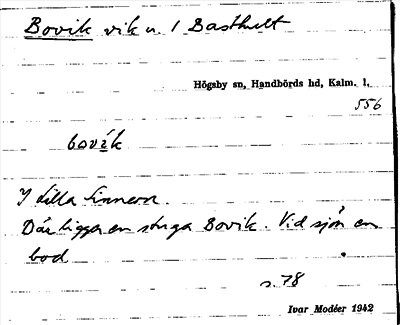 Bovik vik u. 1 Basthult
Högsby sn, Handbörds hd, Kalm. l.
556
bovik
I Lilla Sinnern.
Där ligger en stuga Bovik. Vid sjön en
bod.
s. 78
Ivar Modéer 1942